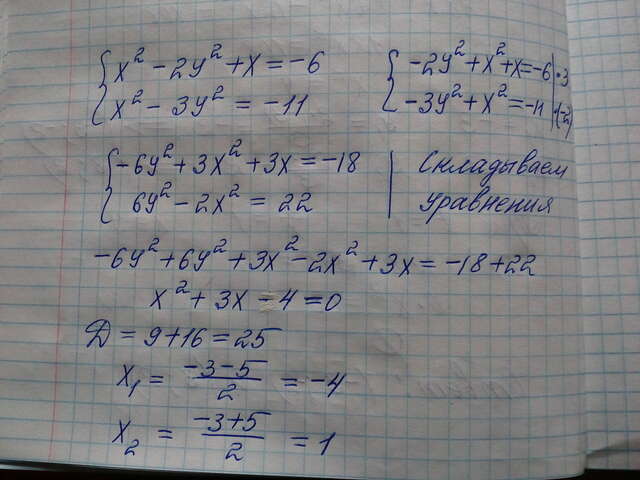 x² - 2y² + x = -6
x² - 3y² = -11
-2y² + x² + x = -6 | ·3
-3y² + x² = -11 | ·(-2)
-6y² + 3x² + 3x = -18
6y² - 2x² = 22
Складываем
уравнения
-6y² + 6y² + 3x² - 2x² + 3x = -18 + 22
x² + 3x - 4 = 0
D = 9 + 16 = 25
x₁ = (-3-5)/2 = -4
x₂ = (-3+5)/2 = 1